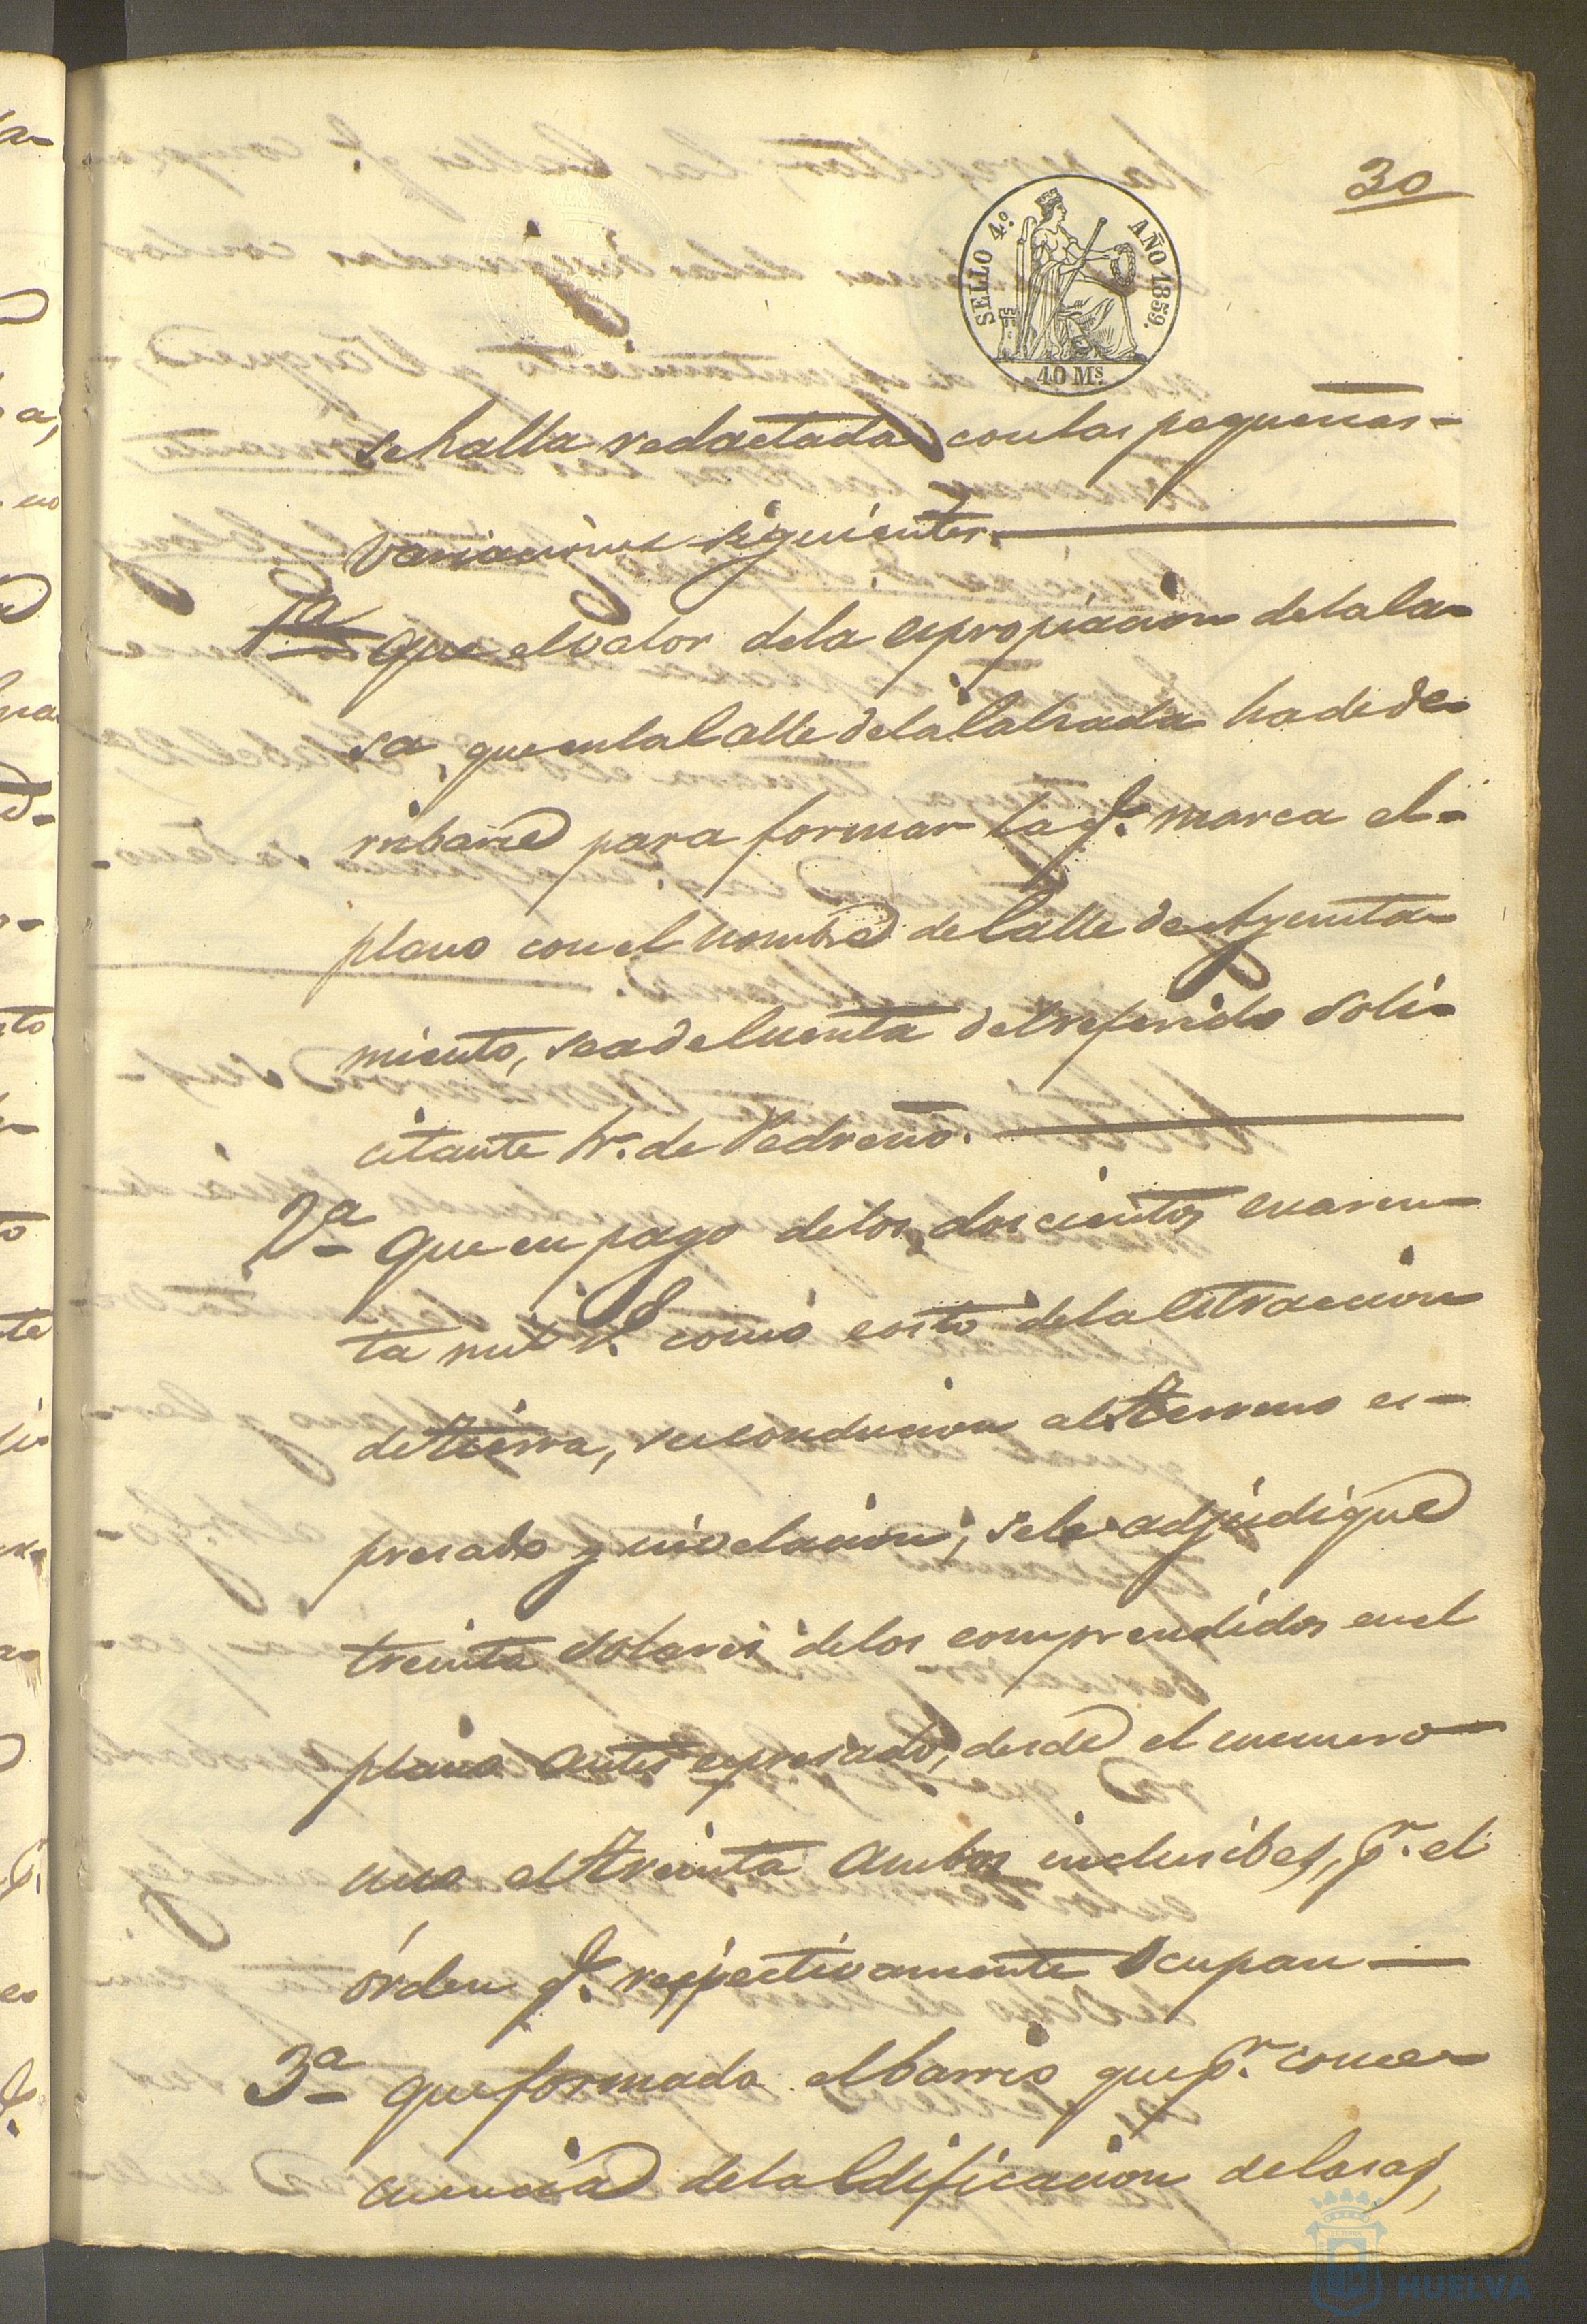 30
SELLO 4.º AÑO 1859.
40 Ms.
se halla redactada con las pequeñas-
variaciones siguientes.
1ª que el valor de la espropiacion de la Ca-
sa, que en la Calle de la Calzada ha de de-
rribarse para formar la q.e marca el-
plano con el nombre de Calle de Ayunta-
miento, sea de cuenta del referido Soli-
citante Sr. de Pedreño.
2ª Que en pago de los doscientos cuaren-
ta mil r.s como costo de la Estraccion
de tierra, su conducion al terreno es-
presado y nivelacion, se le adjudique
treinta Solares de los comprendidos en el
plano antes espresado, desde el numero
uno al treinta ambos inclusibes, p.r el
órden q.e respectivamente ocupan
3ª que formado el barrio que p.r conse-
cuencia de la Edificacion de Casas,
HUELVA